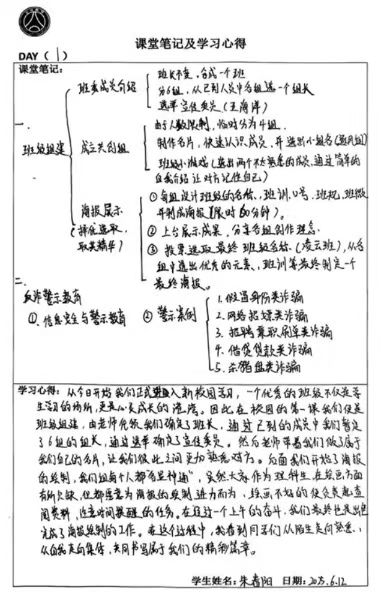 课堂笔记及学习心得
DAY（1）
课堂笔记：
班委成员介绍
班长不变，合成一个班
分6组，从已到人员中各组选一个组长
选举宣传委员（王海洋）
一、
班级组建
成立类别组
由于人数限制，临时分为4组
制作名片，快速认识成员，并选出小组名
班级小游戏（选出两个不太熟悉的成员，通过简单的
自我介绍让对方记住自己）
海报展示
（择优选取，
取其精华）
①每组设计班级的名称、班训、口号、班规、班徽
并制成海报（限时60分钟）。
②上台展示成果，分享各组创作理念
③投票选取最终班级名称（凌云班），从各
组中选出优秀的元素、班训等最终制定一个
最终海报。
二、
反诈警示教育
①信息安全与警示教育
②警示案例
1.假冒身份类诈骗
2.网络招嫖类诈骗
3.招聘兼职刷单类诈骗
4.借贷贷款类诈骗
5.杀猪盘类诈骗
学习心得：从今日开始我们正式进入新校园学习，一个优秀的班级不仅是学
生学习的场所，更是心灵成长的港湾。因此在校园的第一课我们便是
班级组建，由老师先领我们确定了班长，通过已到的成员中我们暂定
了6组的组长，通过选举确定了宣传委员。然后老师带着我们做了属于
我们自己的名片，让我们彼此之间更加熟悉对方。后面我们开始了海报
的绘制，我们组每个人都各显神通，虽然大家作为理科生在绘画方面
有所欠缺，但都愿意为海报的绘制进力而为，绘画不好的便负责起查
阅资料，注意时间提醒的任务。在经过一个上午的奋斗，我们最终也是出色
完成了海报绘制的工作。在这个过程中，我看到同学们从陌生走向熟悉，
从自我走向集体，共同书写属于我们的精彩篇章。
学生姓名：朱春阳 日期：2025.6.12